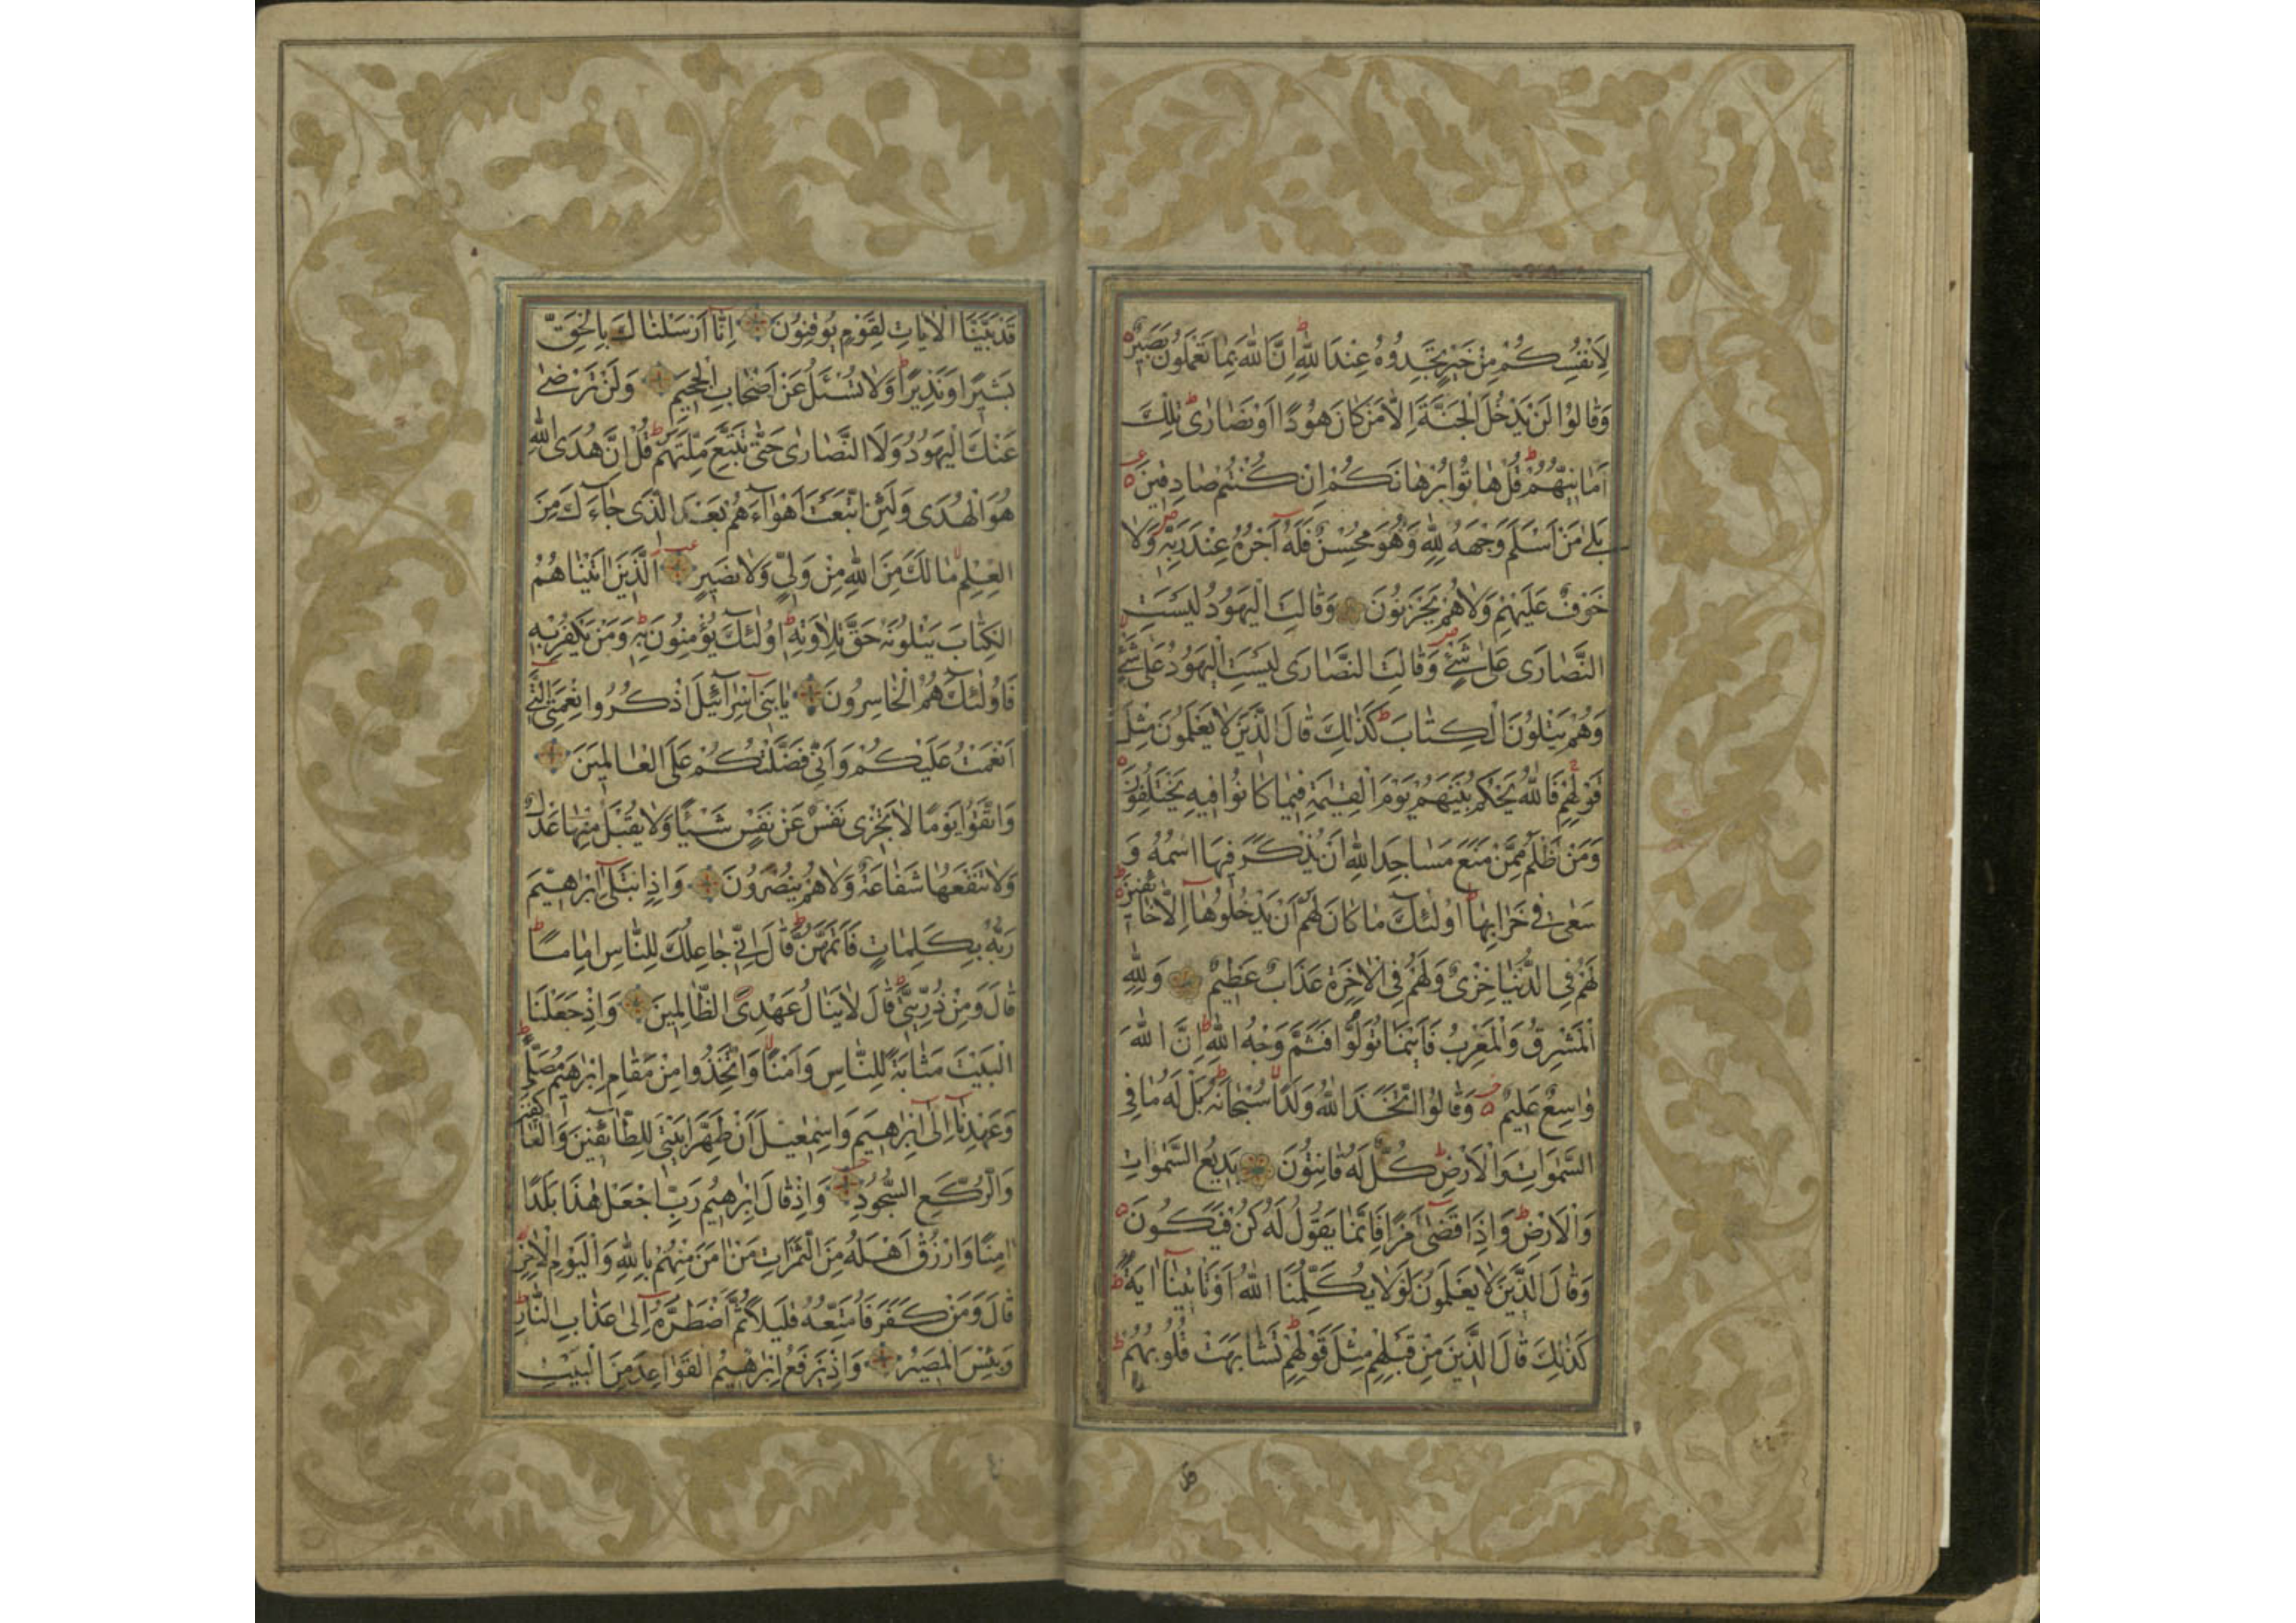 لِاَنْفُسِكُمْ مِنْ خَيْرٍ تَجِدُوهُ عِنْدَ اللّٰهِ اِنَّ اللّٰهَ بِمَا تَعْمَلُونَ بَصِيرٌ
وَقَالُوا لَنْ يَدْخُلَ الْجَنَّةَ اِلَّا مَنْ كَانَ هُودًا اَوْ نَصَارٰى تِلْكَ
اَمَانِيُّهُمْ قُلْ هَاتُوا بُرْهَانَكُمْ اِنْ كُنْتُمْ صَادِقِينَ
بَلٰى مَنْ اَسْلَمَ وَجْهَهُ لِلّٰهِ وَهُوَ مُحْسِنٌ فَلَهُ اَجْرُهُ عِنْدَ رَبِّهِ وَلَا
خَوْفٌ عَلَيْهِمْ وَلَا هُمْ يَحْزَنُونَ وَقَالَتِ الْيَهُودُ لَيْسَتِ
النَّصَارٰى عَلٰى شَيْءٍ وَقَالَتِ النَّصَارٰى لَيْسَتِ الْيَهُودُ عَلٰى شَيْءٍ
وَهُمْ يَتْلُونَ الْكِتَابَ كَذٰلِكَ قَالَ الَّذِينَ لَا يَعْلَمُونَ مِثْلَ
قَوْلِهِمْ فَاللّٰهُ يَحْكُمُ بَيْنَهُمْ يَوْمَ الْقِيٰمَةِ فِيمَا كَانُوا فِيهِ يَخْتَلِفُونَ
وَمَنْ اَظْلَمُ مِمَّنْ مَنَعَ مَسَاجِدَ اللّٰهِ اَنْ يُذْكَرَ فِيهَا اسْمُهُ وَ
سَعٰى فِي خَرَابِهَا اُولٰئِكَ مَا كَانَ لَهُمْ اَنْ يَدْخُلُوهَا اِلَّا خَائِفِينَ
لَهُمْ فِي الدُّنْيَا خِزْيٌ وَلَهُمْ فِي الْاٰخِرَةِ عَذَابٌ عَظِيمٌ وَلِلّٰهِ
الْمَشْرِقُ وَالْمَغْرِبُ فَاَيْنَمَا تُوَلُّوا فَثَمَّ وَجْهُ اللّٰهِ اِنَّ اللّٰهَ
وَاسِعٌ عَلِيمٌ وَقَالُوا اتَّخَذَ اللّٰهُ وَلَدًا سُبْحَانَهُ بَلْ لَهُ مَا فِي
السَّمٰوَاتِ وَالْاَرْضِ كُلٌّ لَهُ قَانِتُونَ بَدِيعُ السَّمٰوَاتِ
وَالْاَرْضِ وَاِذَا قَضٰى اَمْرًا فَاِنَّمَا يَقُولُ لَهُ كُنْ فَيَكُونُ
وَقَالَ الَّذِينَ لَا يَعْلَمُونَ لَوْلَا يُكَلِّمُنَا اللّٰهُ اَوْ تَأْتِينَا اٰيَةٌ
كَذٰلِكَ قَالَ الَّذِينَ مِنْ قَبْلِهِمْ مِثْلَ قَوْلِهِمْ تَشَابَهَتْ قُلُوبُهُمْ
قَدْ بَيَّنَّا الْاٰيَاتِ لِقَوْمٍ يُوقِنُونَ اِنَّا اَرْسَلْنَاكَ بِالْحَقِّ
بَشِيرًا وَنَذِيرًا وَلَا تُسْئَلُ عَنْ اَصْحَابِ الْجَحِيمِ وَلَنْ تَرْضٰى
عَنْكَ الْيَهُودُ وَلَا النَّصَارٰى حَتّٰى تَتَّبِعَ مِلَّتَهُمْ قُلْ اِنَّ هُدَى اللّٰهِ
هُوَ الْهُدٰى وَلَئِنِ اتَّبَعْتَ اَهْوَاءَهُمْ بَعْدَ الَّذِي جَاءَكَ مِنَ
الْعِلْمِ مَا لَكَ مِنَ اللّٰهِ مِنْ وَلِيٍّ وَلَا نَصِيرٍ اَلَّذِينَ اٰتَيْنَاهُمُ
الْكِتَابَ يَتْلُونَهُ حَقَّ تِلَاوَتِهِ اُولٰئِكَ يُؤْمِنُونَ بِهِ وَمَنْ يَكْفُرْ بِهِ
فَاُولٰئِكَ هُمُ الْخَاسِرُونَ يَا بَنِي اِسْرَائِيلَ اذْكُرُوا نِعْمَتِيَ الَّتِي
اَنْعَمْتُ عَلَيْكُمْ وَاَنِّي فَضَّلْتُكُمْ عَلَى الْعَالَمِينَ
وَاتَّقُوا يَوْمًا لَا تَجْزِي نَفْسٌ عَنْ نَفْسٍ شَيْئًا وَلَا يُقْبَلُ مِنْهَا عَدْلٌ
وَلَا تَنْفَعُهَا شَفَاعَةٌ وَلَا هُمْ يُنْصَرُونَ وَاِذِ ابْتَلٰى اِبْرٰهِيمَ
رَبُّهُ بِكَلِمَاتٍ فَاَتَمَّهُنَّ قَالَ اِنِّي جَاعِلُكَ لِلنَّاسِ اِمَامًا
قَالَ وَمِنْ ذُرِّيَّتِي قَالَ لَا يَنَالُ عَهْدِي الظَّالِمِينَ وَاِذْ جَعَلْنَا
الْبَيْتَ مَثَابَةً لِلنَّاسِ وَاَمْنًا وَاتَّخِذُوا مِنْ مَقَامِ اِبْرٰهِيمَ مُصَلًّى
وَعَهِدْنَا اِلٰى اِبْرٰهِيمَ وَاِسْمٰعِيلَ اَنْ طَهِّرَا بَيْتِيَ لِلطَّائِفِينَ وَالْعَاكِفِينَ
وَالرُّكَّعِ السُّجُودِ وَاِذْ قَالَ اِبْرٰهِيمُ رَبِّ اجْعَلْ هٰذَا بَلَدًا
اٰمِنًا وَارْزُقْ اَهْلَهُ مِنَ الثَّمَرَاتِ مَنْ اٰمَنَ مِنْهُمْ بِاللّٰهِ وَالْيَوْمِ الْاٰخِرِ
قَالَ وَمَنْ كَفَرَ فَاُمَتِّعُهُ قَلِيلًا ثُمَّ اَضْطَرُّهُ اِلٰى عَذَابِ النَّارِ
وَبِئْسَ الْمَصِيرُ وَاِذْ يَرْفَعُ اِبْرٰهِيمُ الْقَوَاعِدَ مِنَ الْبَيْتِ